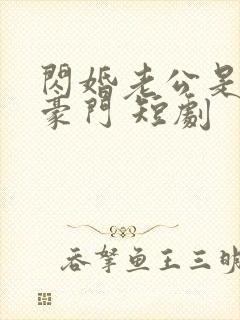 閃婚老公是
豪門 短劇
吞拏鱼王三